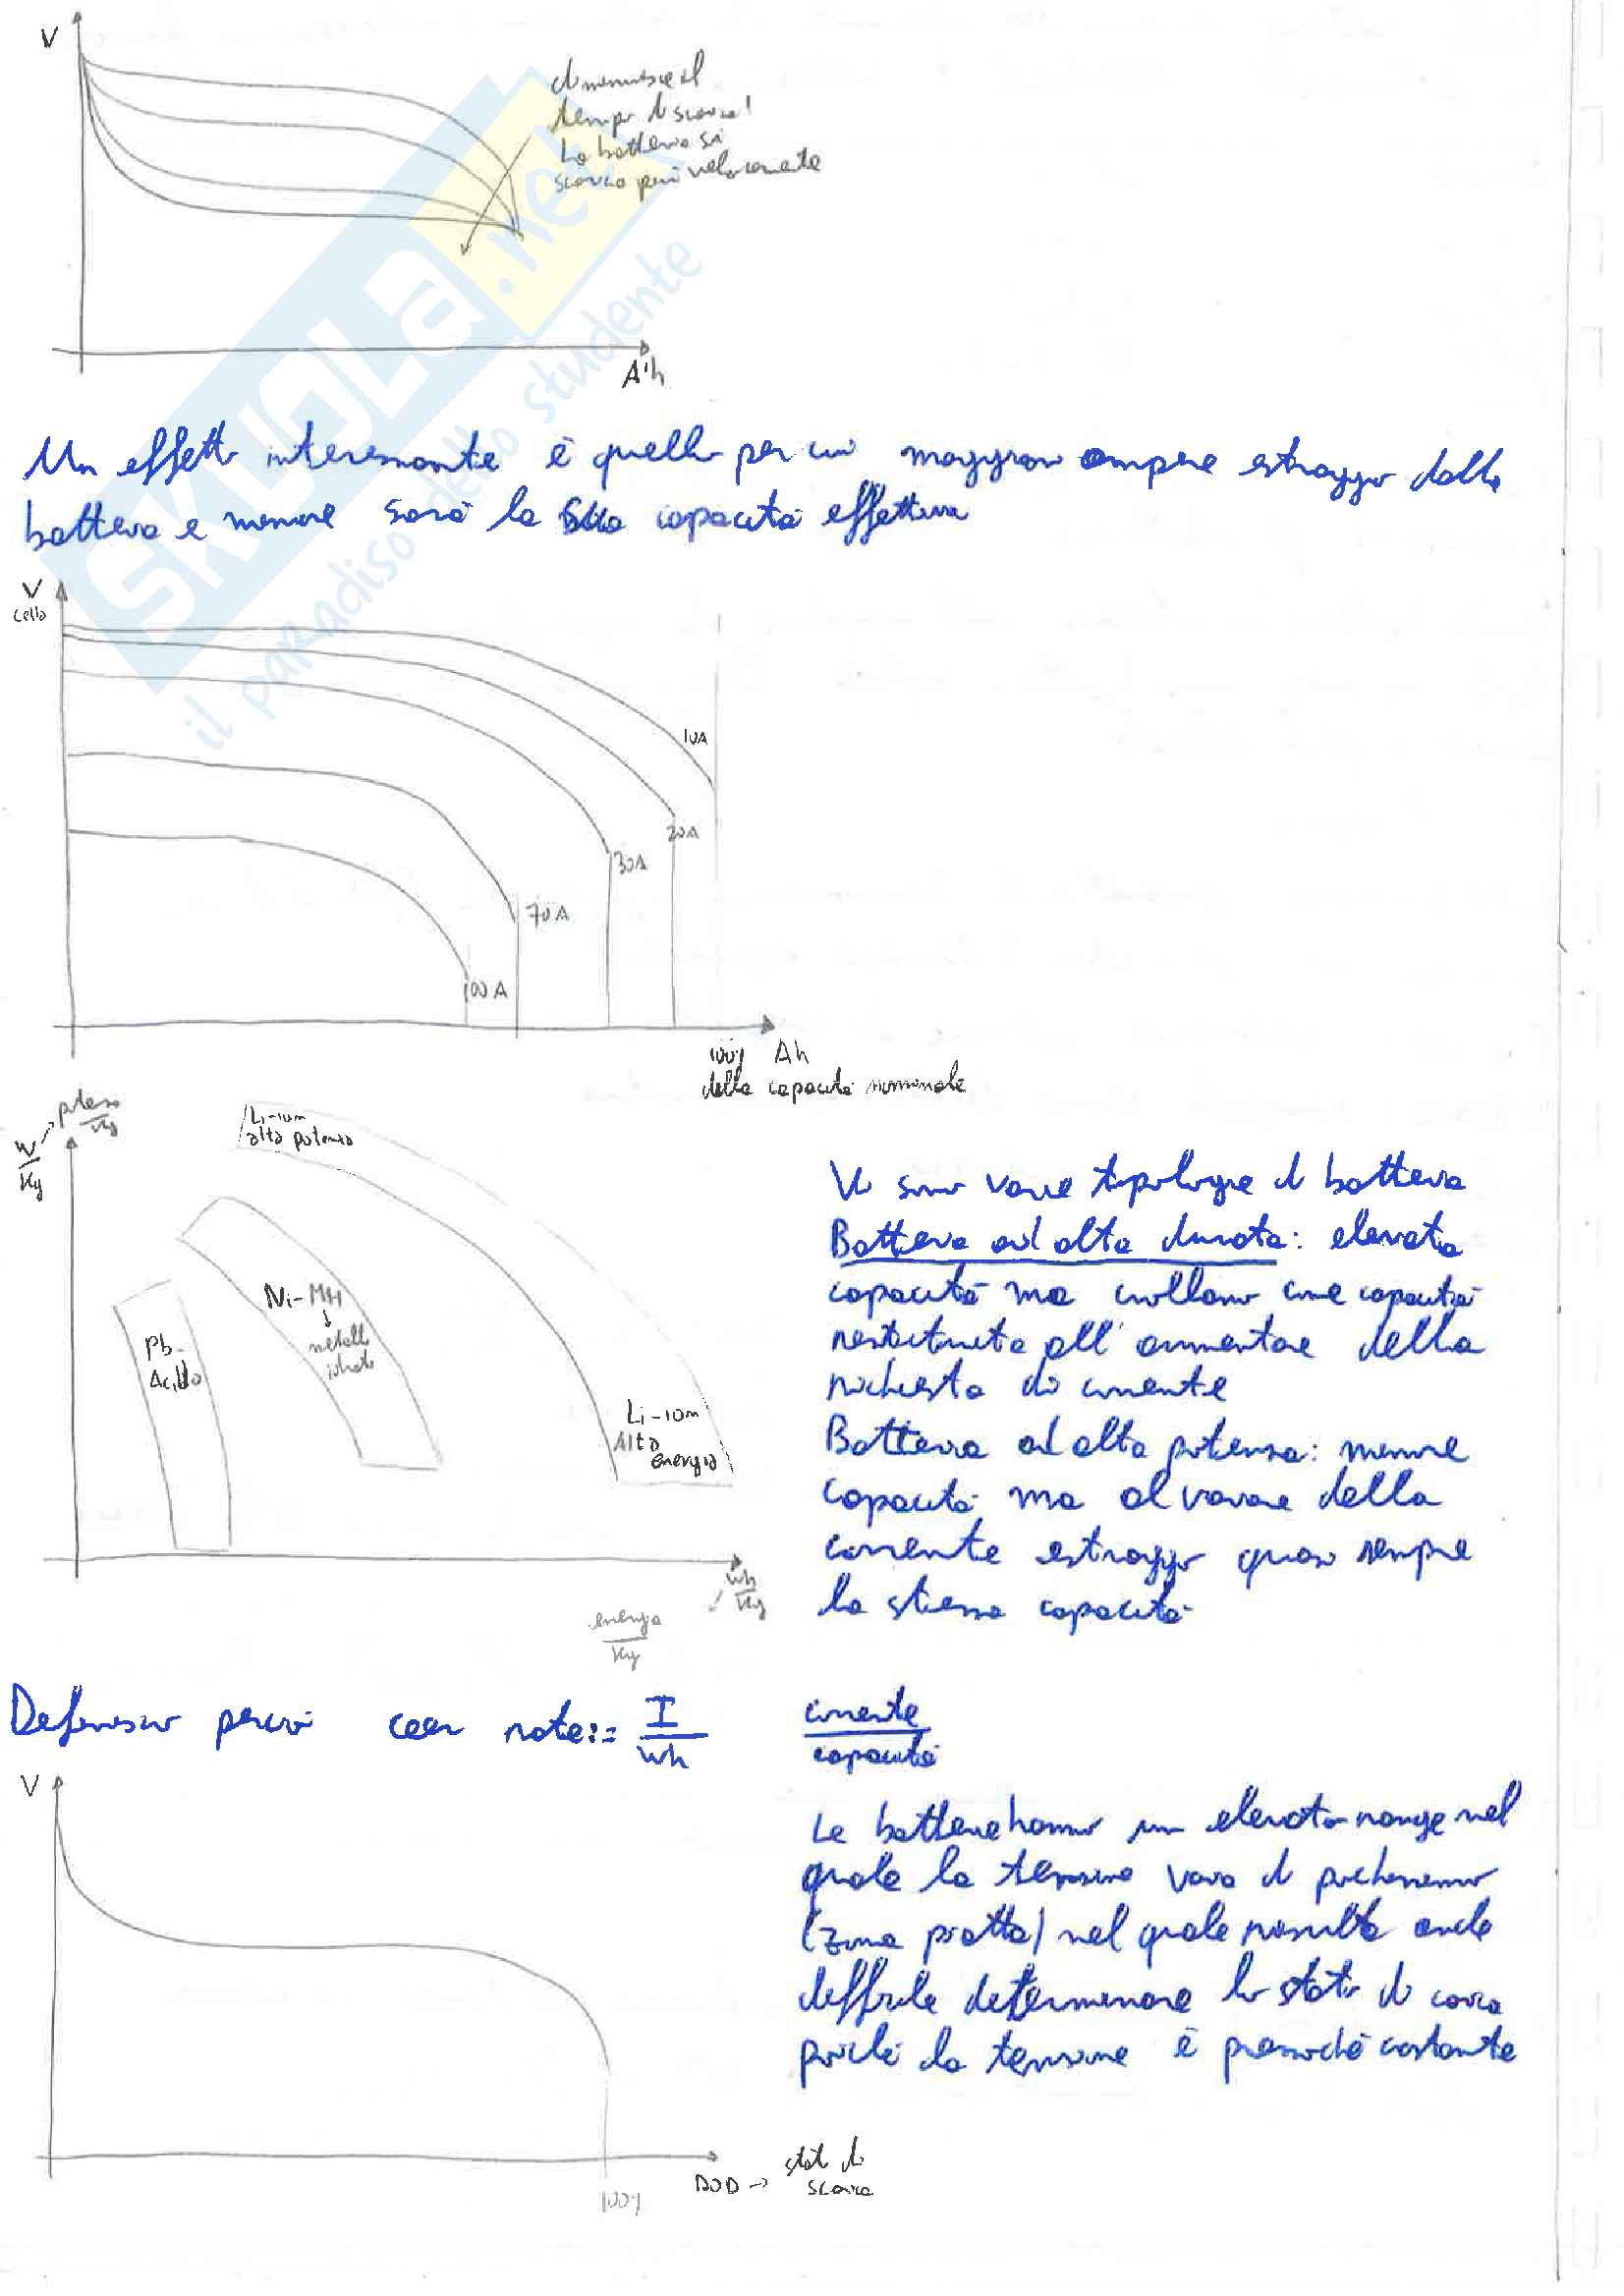 V
diminuisce il
tempo di scarica!
La batteria si
scarica più velocemente
A·h
SKUOLA.net
il paradiso dello studente
Un effetto interessante è quello per cui maggiori ampere estraggo dalla
batteria e minore sarà la sua capacità effettiva
V
cella
10A
20A
30A
70A
100A
100% Ah
della capacità nominale
potenza
Kg
W
Kg
Li-ion
alta potenza
Ni-MH
metalli
idrati
Pb-
Acido
Li-ion
Alta
energia
Wh
Kg
energia
Kg
Vi sono varie tipologie di batteria
Batteria ad alta durata: elevata
capacità ma crollano come capacità
restituita all'aumentare della
richiesta di corrente
Batteria ad alta potenza: minore
capacità ma al variare della
corrente estraggo quasi sempre
la stessa capacità
Definisco perciò rate:= I
Wh
corrente
capacità
V
Le batterie hanno un elevato range nel
quale la tensione varia di pochissimo
(zona piatta) nel quale risulta anche
difficile determinare lo stato di carica
poiché la tensione è pressoché costante
DOD → stato di
scarica
100%